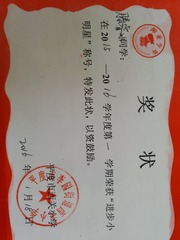 奖状
同学:
在2015—2016学年度第一学期荣获“进步小
明星”称号,特发此状,以资鼓励。
平度市关小学
2016年1月18日